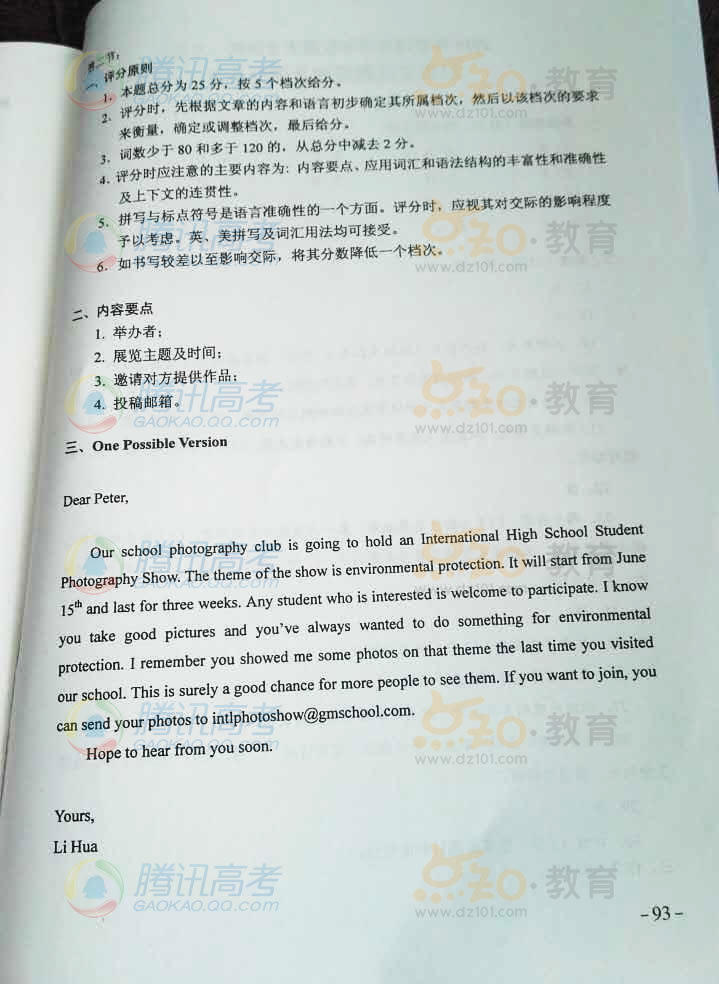 第二节：
一、评分原则
1. 本题总分为 25 分，按 5 个档次给分。
2. 评分时，先根据文章的内容和语言初步确定其所属档次，然后以该档次的要求
来衡量，确定或调整档次，最后给分。
3. 词数少于 80 和多于 120 的，从总分中减去 2 分。
4. 评分时应注意的主要内容为：内容要点、应用词汇和语法结构的丰富性和准确性
及上下文的连贯性。
5. 拼写与标点符号是语言准确性的一个方面。评分时，应视其对交际的影响程度
予以考虑。英、美拼写及词汇用法均可接受。
6. 如书写较差以至影响交际，将其分数降低一个档次。
二、内容要点
1. 举办者；
2. 展览主题及时间；
3. 邀请对方提供作品；
4. 投稿邮箱。
三、One Possible Version
Dear Peter,
Our school photography club is going to hold an International High School Student
Photography Show. The theme of the show is environmental protection. It will start from June
15th and last for three weeks. Any student who is interested is welcome to participate. I know
you take good pictures and you've always wanted to do something for environmental
protection. I remember you showed me some photos on that theme the last time you visited
our school. This is surely a good chance for more people to see them. If you want to join, you
can send your photos to intlphotoshow@gmschool.com.
Hope to hear from you soon.
Yours,
Li Hua
-93-
腾讯高考
GAOKAO.QQ.COM
点知·教育
www.dz101.com